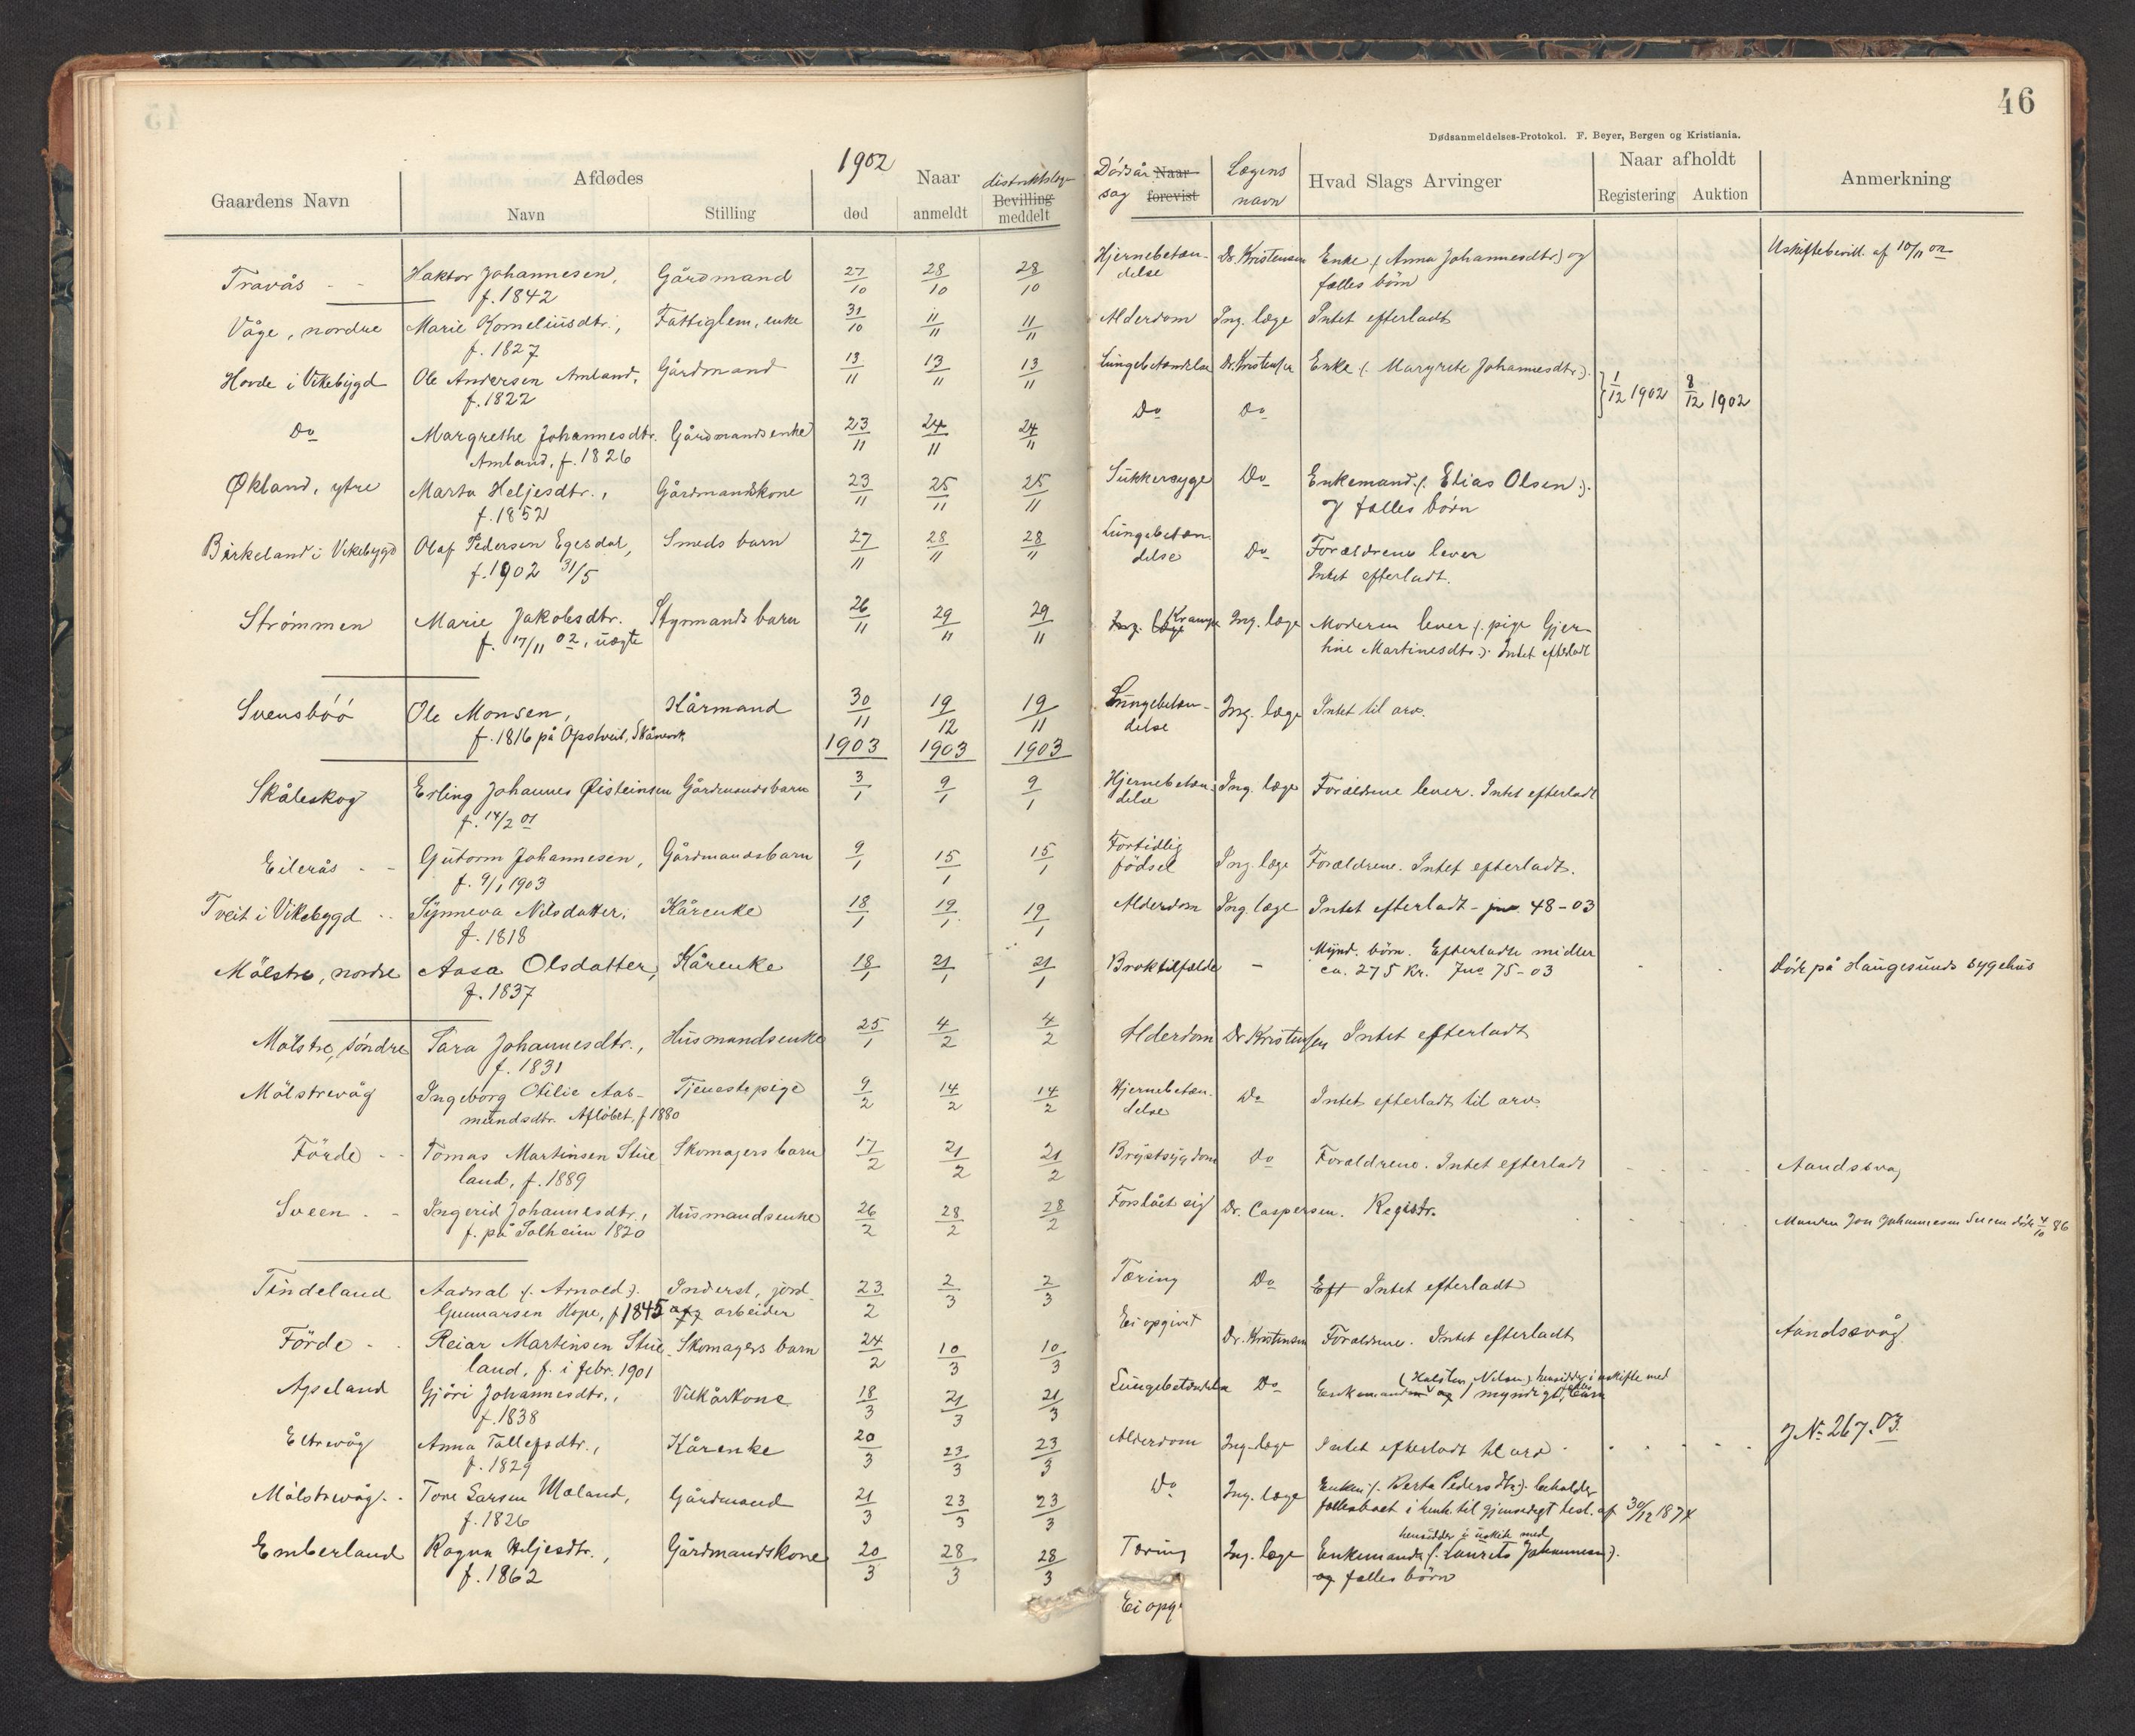 46
Dødsanmeldelses-Protokol. F. Beyer, Bergen og Kristiania.
1902
Gaardens Navn | Afdødes Navn | Stilling | Naar død | anmeldt | distriktslæge Bevilling meddelt | Dødsårsag Naar forevist | Lægens navn | Hvad Slags Arvinger | Naar afholdt Registering | Auktion | Anmerkning
Travås - - | Haktor Johannesen, | Gårdmand | 27/10 | 28/10 | 28/10 | Hjernebetæn- | Dr. Kristensen | Enke (: Anna Johannesdtr:) og | Uskiftebevill. af 10/11 02
f. 1842 | delse | fælles børn
Våge, nordre | Marie Korneliusdtr., | Fattiglem, enke | 31/10 | 11/11 | 11/11 | Alderdom | Ing. læge | Intet efterladt
f. 1827
Hovde i Vikebygd | Ole Andersen Amland, | Gårdmand | 13/11 | 13/11 | 13/11 | Lungebetændelse | Dr. Kristensen | Enke (: Margrete Johannesdtr:). | 1/12 1902 | 8/12 1902
f. 1822
Do | Margrethe Johannesdtr. | Gårdmandsenke | 23/11 | 24/11 | 24/11 | Do | Do
Amland, f. 1826
Økland, ytre | Marta Heljesdtr., | Gårdmandskone | 23/11 | 25/11 | 25/11 | Sukkersyge | Do | Enkemand (: Elias Olsen:).
f. 1852 | 7 fælles børn
Birkeland i Vikebygd | Olaf Pedersen Egesdal, | Smeds barn | 27/11 | 28/11 | 28/11 | Lungebetæn- | Do | Forældrene lever
f. 1902 31/5 | delse | Intet efterladt.
Strömmen | Marie Jakobsdtr. | Styrmands barn | 26/11 | 29/11 | 29/11 | Ing. læge Krampe | Ing. læge | Moderen lever (: pige Gjer-
f. 17/11 02, uægte | tine Martinesdtr:). Intet efterladt
Svensböö | Ole Monsen, | Kårmand | 30/11 | 19/12 | 19/11 | Lungebetæn- | Ing. læge | Intet til arv.
f. 1816 på Opstveit, Skånevik | delse
1903 | 1903 | 1903
Skåleskog | Erling Johannes Øisteinsen | Gårdmandsbarn | 3/1 | 9/1 | 9/1 | Hjernebetæn- | Ing. læge | Forældrene lever. Intet efterladt
f. 14/2 01 | delse
Eilerås - - | Gutorm Johannesen, | Gårdmandsbarn | 9/1 | 15/1 | 15/1 | Fortidlig | Ing. læge | Forældrene. Intet efterladt.
f. 9/1 1903 | födsel
Tveit i Vikebygd | Synneva Nilsdatter, | Kårenke | 18/1 | 19/1 | 19/1 | Alderdom | Ing. læge | Intet efterladt - 48-03
f. 1818
Mölstre, nordre | Aasa Olsdatter, | Kårenke | 18/1 | 21/1 | 21/1 | Broktilfælde | - | Mynd. børn. Efterladte midler | Døde på Haugesunds sygehus
f. 1837 | ca. 275 kr. Jno 75-03
Mölstre, söndre | Sara Johannesdtr., | Husmandsenke | 25/1 | 4/2 | 4/2 | Alderdom | Dr. Kristensen | Intet efterladt
f. 1831
Mölstrevåg | Ingeborg Otilie Aas- | Tjenestepige | 9/2 | 14/2 | 14/2 | Hjernebetæn- | Do | Intet efterladt til arv.
mundsdtr. Aflöbet, f 1880 | delse
Förde - - | Tomas Martinsen Stue- | Skomagers barn | 17/2 | 21/2 | 21/2 | Brystsygdom | Do | Forældrene. Intet efterladt | Aandsvåg
land, f. 1889
Sveen - - | Ingerid Johannesdtr., | Husmandsenke | 26/2 | 28/2 | 28/2 | Forslået sig | Dr. Caspersen. | Registr. | Manden Jon Johannesen Sveen døde 4/10 86
f. på Solheim 1820
Tindeland | Aadnal (: Arnold:). | Inderst, jord- | 23/2 | 2/3 | 2/3 | Tæring | Do | Eft Intet efterladt
Gunnarsen Hope, f 1845 | arbeider
Förde - - | Reiar Martinsen Stue- | Skomagers barn | 24/2 | 10/3 | 10/3 | Ei opgivet | Dr. Kristensen | Forældrene. Intet efterladt | Aandsevåg.
land, f. i febr. 1901
Apeland | Gjöri Johannesdtr., | Vilkårkone | 18/3 | 21/3 | 21/3 | Lungebetændelse | Do | Enkemanden (Halsten Nilsen) hensidder i uskifte med
f. 1838 | og myndigt, fælles barn
Eltrevåg | Anna Tollefsdtr., | Kårenke | 20/3 | 23/3 | 23/3 | Alderdom | Ing. læge | Intet efterladt til arv | J No 267.03.
f. 1829
Mölstrevåg - | Tore Larsen Mæland, | Gårdmand | 21/3 | 23/3 | 23/3 | Do | Ing. læge | Enken (: Berta Pedersdtr:). beholder
f. 1826 | fællesboet i henh. til gjensidigt test. af 30/12 1874
Emberland | Ragna Heljesdtr., | Gårdmandskone | 20/3 | 28/3 | 28/3 | Tæring | Ing. læge | Enkemanden (: Laurits Johannesen:). hensidder i uskifte med
f. 1862 | og fælles börn
Ei opg